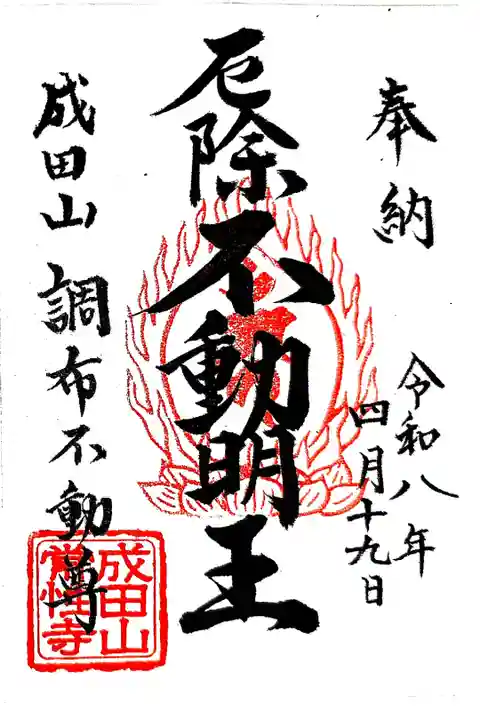 奉納
令和八年
四月十九日
厄除不動明王
成田山 調布不動尊
成田山
常性寺